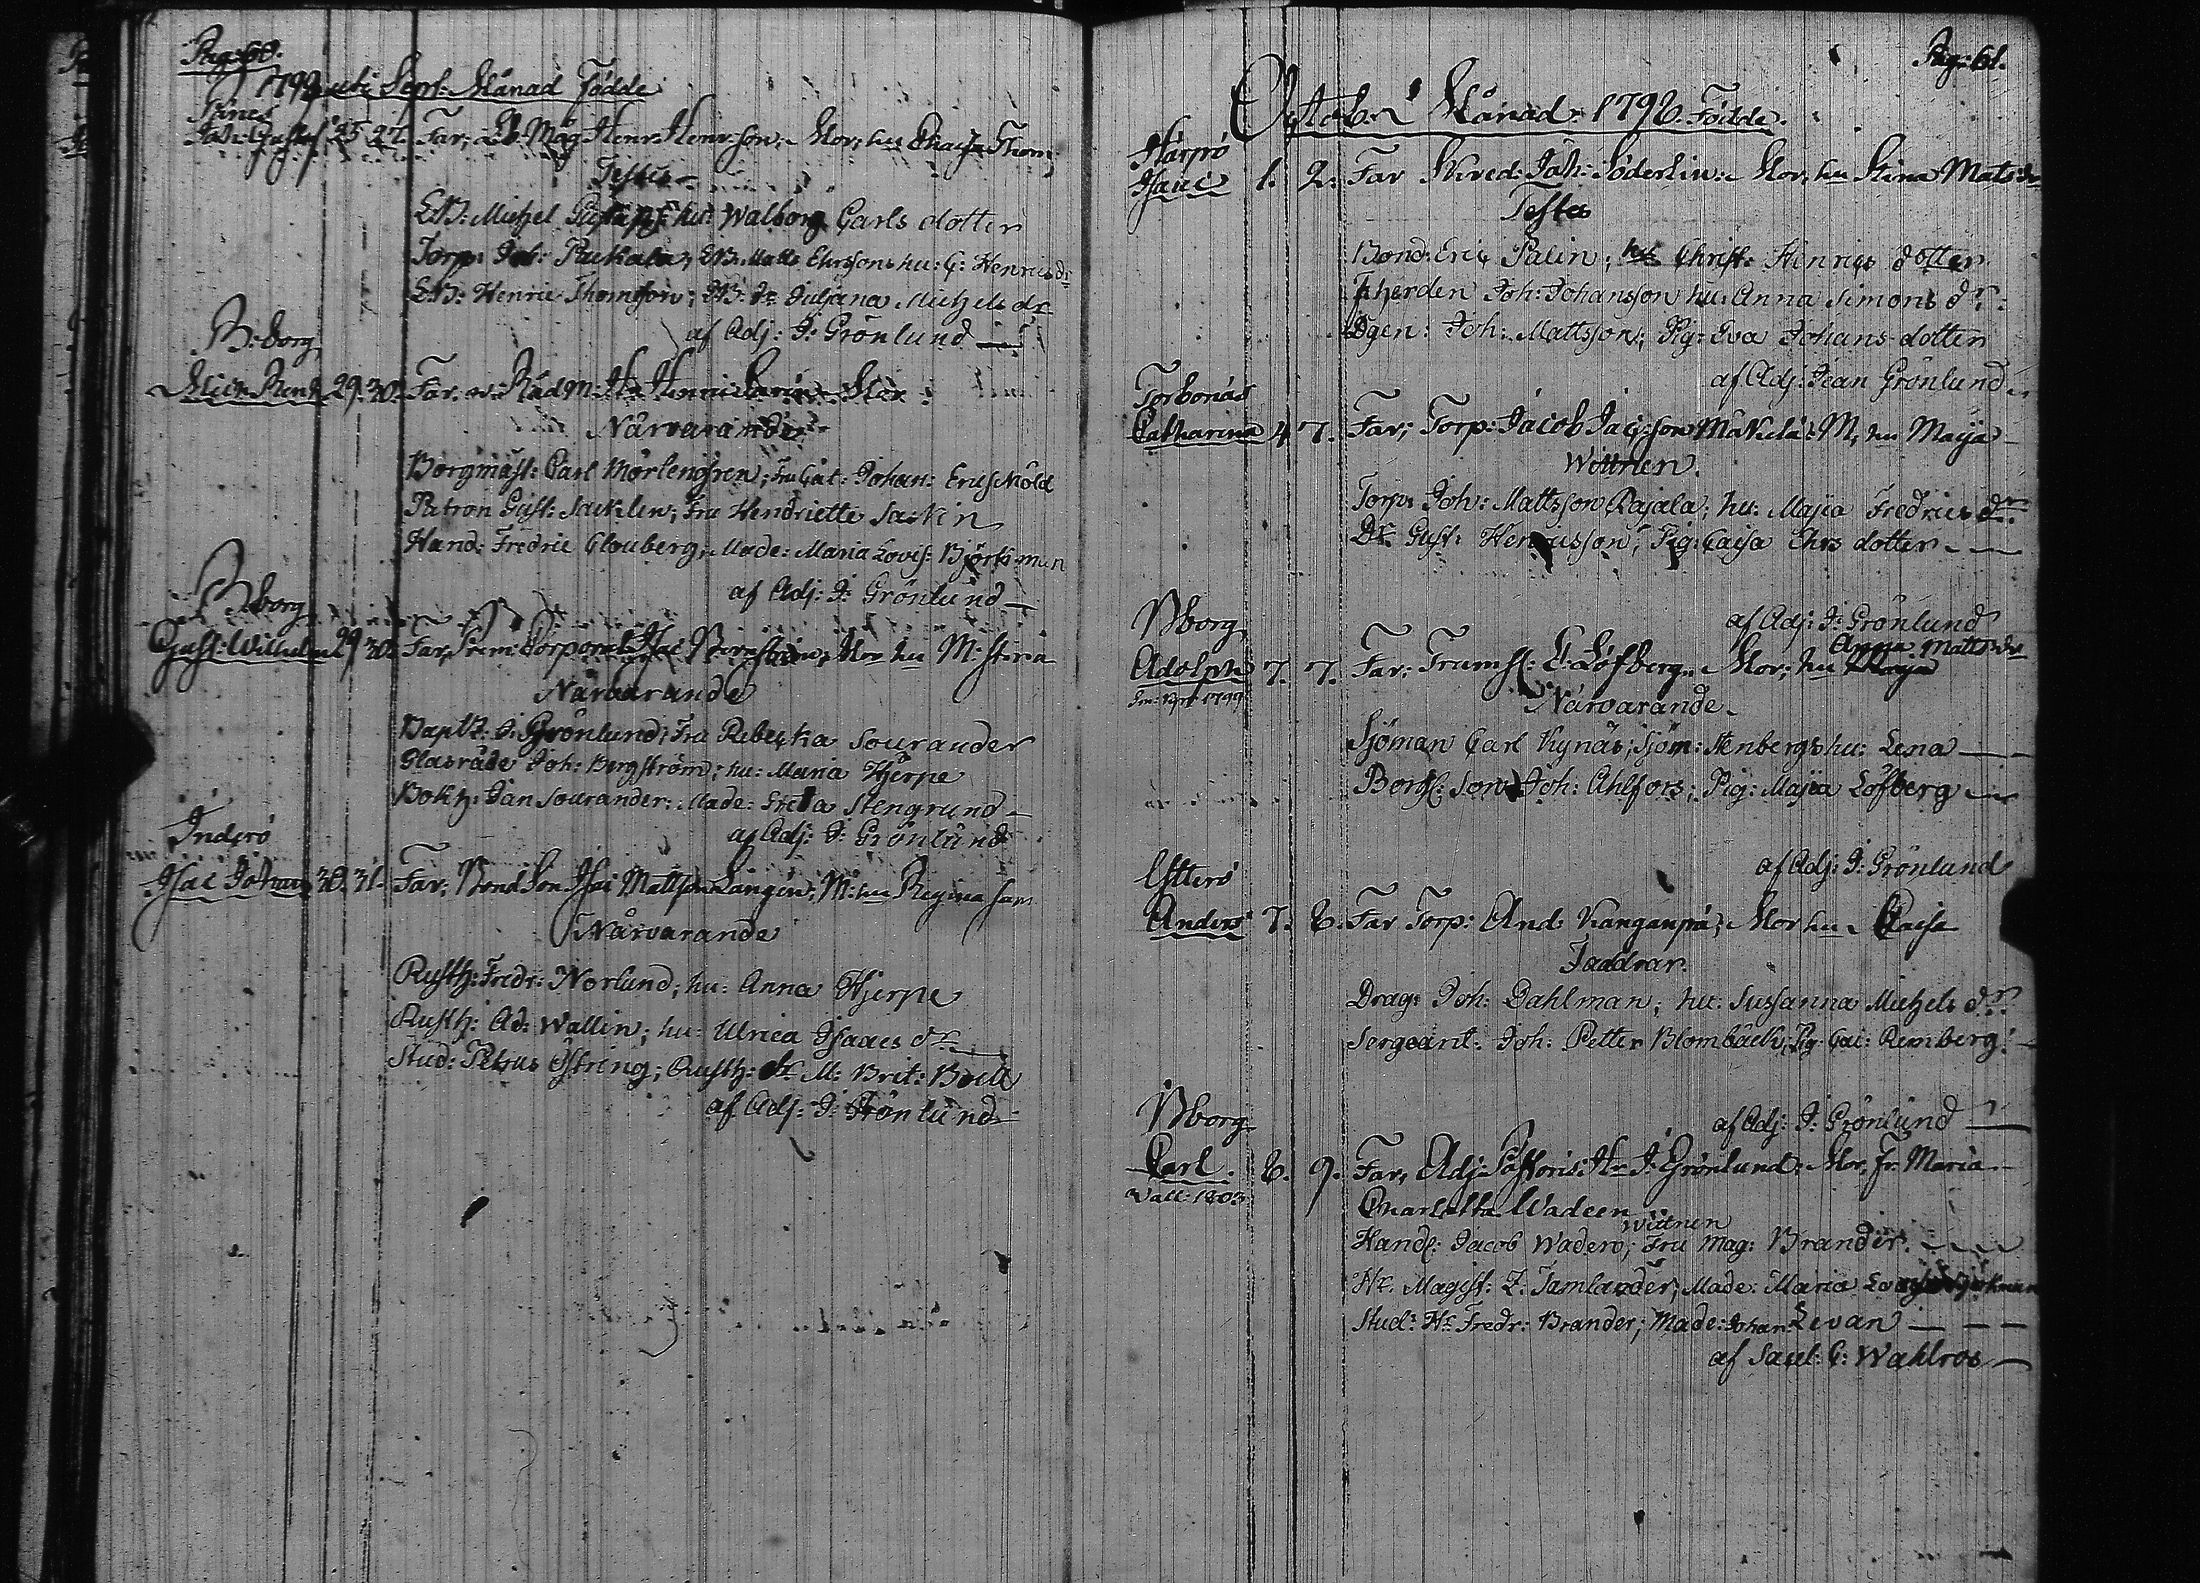 Pag: 60.
1798 uti Sept: Månad Födde
Joh: Gustaf 25 27. Far; Eb Måg Henr: Henr:son; Mor; hu Chaisa Thom:
Testes
EB: Michel hu: Walborg Carls dotter
Torp: Joh: Pukala; EB: Matts Ehrssons hu: C: Henrics dr
EB: Henric Thomsson; EB: dr Juliana Michels dr
af Adj: J: Grönlund
B:borg
29. 30. Far. Rådm: Hr Henric
Närvarande
Borgmäst: Carl Mörtengren; Fru Cat: Johan: Enesköld
Patron Gust: Sacklen; Fru Hendriette Sacklin
Hand: Fredric Clouberg; Made: Maria Lovis: Björkman
af Adj: J: Grönlund
B:borg
Gust: Wilhelm 29 30. Far, Prem: Corporal Isac Mor hu M: Stina
Närvarande
J: Grönlund; Fru Rebecka Sourander
Joh: Bergström; hu: Maria Hjerpe
Bokh: Jan Sourander: Made: Greta Stengrund
af Adj: J: Grönlund
Inderö
Isac Johan 30. 31. Far; Bond Son Isac Mattson Långén; M: hu Regina
Närvarande
Rusth: Fredr: Norlund; hu: Anna Hjerpe
Rusth: Ad: Wallin; hu: Ulrica Isaacs dr
Stud: Petrus Östring; Rusth: dr M: Brit: Boëll
af Adj: J: Grönlund
Pag: 61.
October Månad 1798. Födde.
Härpö
Isaac 1. 2. Far Skred: Joh: Söderlin: Mor; hu Stina Mats dr
Testes
Bond: Eric Palin; hu: Christ: Henrics dotter
Joh: Johansson hu: Anna Simons dr:
Dgen: Joh: Mattsson; Pig: Eva Johans dotter
af Adj: Jean Grönlund
Torbonäs
Catharina 4 7. Far; Torp: Jacob Jac:son Mäkelä: M, hu Maija
Wittnen.
Torp: Joh: Mattsson Rajala; hu: Majia Fredrics dr
Dr: Gust: Henricsson; Pig: Caisa Ehrs dotter
af Adj: J: Grönlund
Bborg
Anna Matts dr
Adolph 7. 7. Far; Trumsl: E: Löfberg Mor; hu
Närvarande
Sjöman Carl Kynäs; Sjöm: Stenbergs hu: Lena
Borgl: Son Joh: Ahlfors; Pig: Majia Löfberg
af Adj: J: Grönlund
Ytterö
Anders 7. 8. Far Torp: And: Kanganpä; Mor hu Caisa
Faddrar.
Drag: Joh: Dahlman; hu: Sussanna Michels dr
Sergeant: Joh: Petter Blombäck; Pig: Cai: Remberg
af Adj: J: Grönlund
Bborg
Carl. 8. 9. Far, Adj: Pastoris: Hr J: Grönlund: Mor, Fr: Maria
Charlotta Wadeen
Wittnen
Handl: Jacob Wadero; Fru Mag: Brander.
Hr. Magist: Z: Tamlander; Made: Maria
Stud: Hr Fredr: Brander; Made: Johan: Levan
af Sacel: C: Wahlros